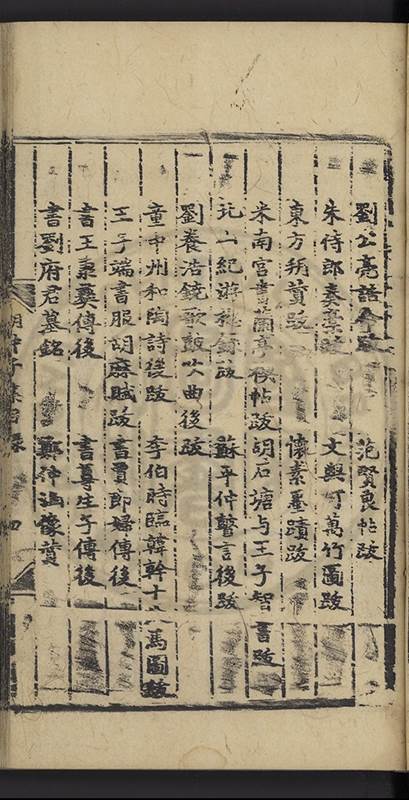 劉公亮誥命跋 范賢良帖跋
朱待郎奏稾跋 文與可萬竹圖跋
東方朔賛跋 懷素墨蹟跋
米南宮書蘭亭禊帖跋 胡石塘与王子智書跋
蘇平仲瞽言後跋
劉養浩鐃歌鼓吹曲後跋
童中州和陶詩後跋 李伯時臨韓幹十 馬圖跋
王子端書服胡麻賦跋 書賈節婦傳後
書王 傳後 書尊生子傳後
書劉府君墓銘 鄭仲涵像賛
胡仲子集 四